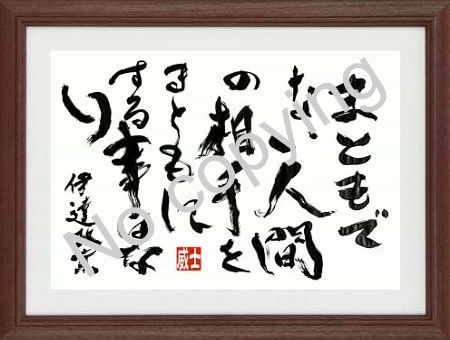 まともで
ない人間
の相手を
まともに
する事はな
い
伊達政宗
威士
No copying